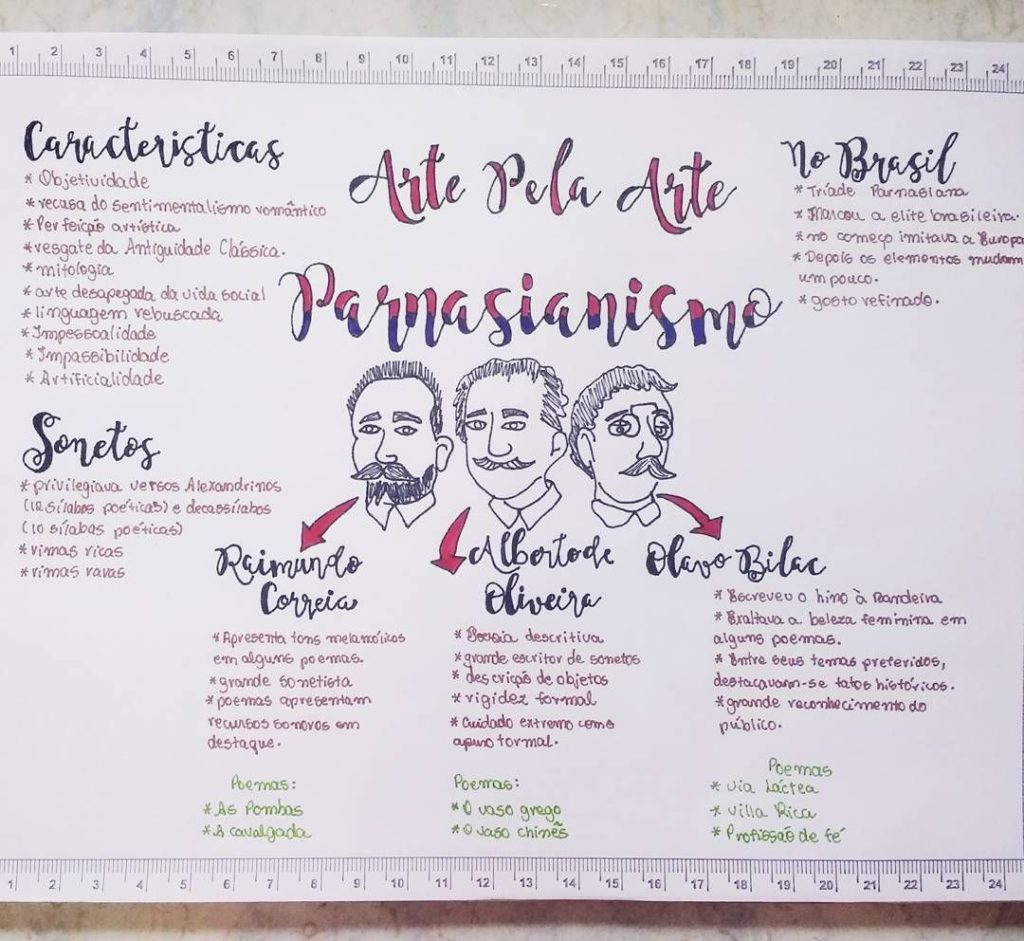 1 2 3 4 5 6 7 8 9 10 11 12 13 14 15 16 17 18 19 20 21 22 23 24
Arte Pela Arte
Parnasianismo
Caracteristicas
* Objetividade
* recusa do sentimentalismo romântico
* Perfeição artística
* resgate da Antiguidade Clássica.
* mitologia
* arte desapegada da vida social
* linguagem rebuscada
* Impessoalidade
* Impassibilidade
* Artificialidade
Sonetos
* privilegiava versos Alexandrinos
(12 sílabas poéticas) e decassílabos
(10 sílabas poéticas)
* rimas ricas
* rimas raras
No Brasil
* Tríade Parnasiana
* Marcou a elite brasileira.
* no começo imitava a Europa
* Depois os elementos mudam
um pouco.
* gosto refinado.
Raimundo
Correia
* Apresenta tons melancólicos
em alguns poemas.
* grande sonetista
* poemas apresentam
recursos sonoros em
destaque.
Poemas:
* As Pombas
* A cavalgada
Alberto de
Oliveira
* Poesia descritiva
* grande escritor de sonetos
* descrição de objetos
* rigidez formal
* Cuidado extremo como
apuro formal.
Poemas:
* O vaso grego
* O vaso chinês
Olavo Bilac
* Escreveu o hino à Bandeira
* Exaltava a beleza feminina em
alguns poemas.
* Entre seus temas preferidos,
destacavam-se fatos históricos.
* grande reconhecimento do
público.
Poemas
* via Láctea
* villa Rica
* Profissão de fé
1 2 3 4 5 6 7 8 9 10 11 12 13 14 15 16 17 18 19 20 21 22 23 24